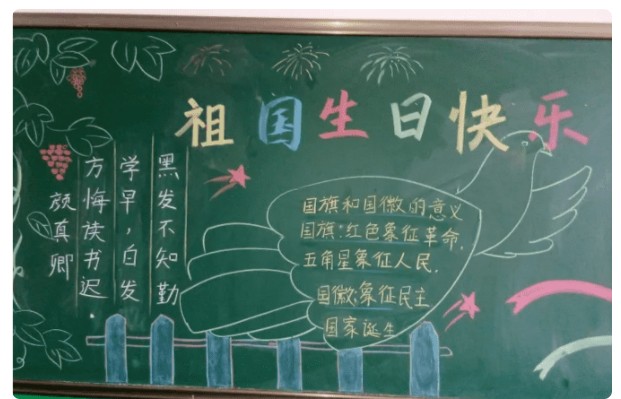 祖国生日快乐
黑发不知勤
学早，白发
方悔读书迟
颜真卿
国旗和国微的意义
国旗:红色象征革命.
五角星象征人民.
国微:象征民主
国家诞生